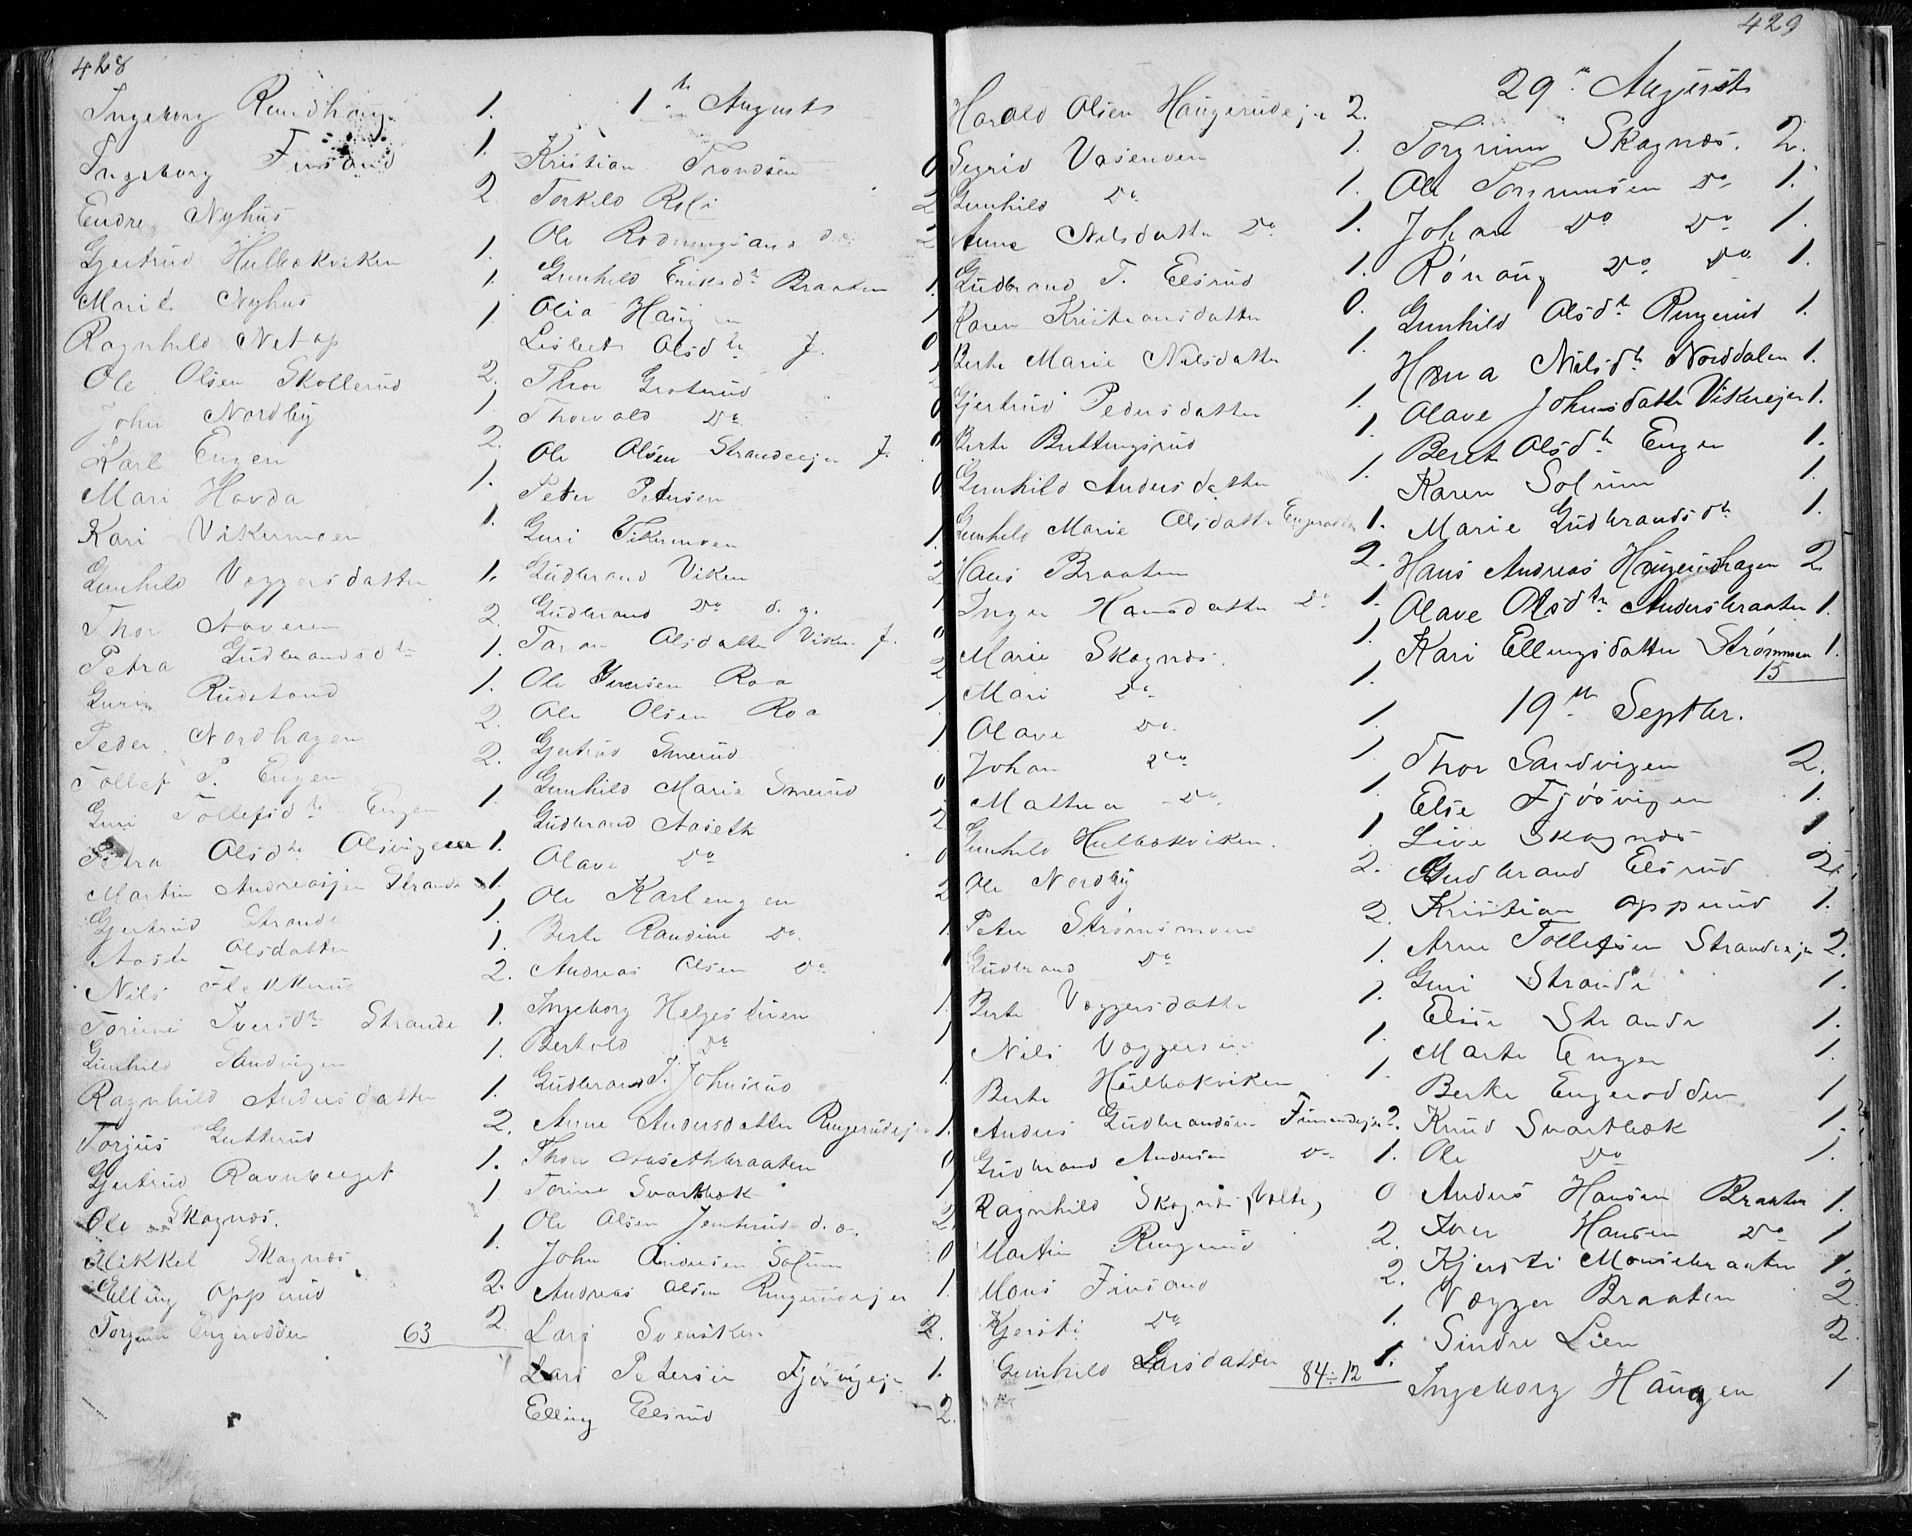 428
Ingeborg Rundhaug 1.
Ingeborg Finsand 1.
Endre Nyhus 2
Gjertrud Hulbækviken 1.
Marit Nyhus 1.
Ragnhild Netop 1
Ole Olsen Skollerud 2.
John Nordby 1
Karl Engen 2.
Mari Hovda 1.
Kari Vikermoen 1.
Gunhild Væggersdatter 1.
Thor Aaveren 2.
Petra Gudbrandsdtr 1.
Guri Rudstand 1.
Peder Nordhagen 2.
Tollef P. Engen 2.
Guri Tollefsdtr Engen 1.
Petra Olsdtr Olsvigeier 1.
Martin Andreasen Strande 1.
Gjertrud Strande 1
Aaste Olsdatter 1.
Nils Flekkerud 2.
Torine Iversdtr Strande 1.
Gunhild Sandvigen 1.
Ragnhild Andersdatter 1.
Torjus Gutterud 2.
Gjertrud Ravnberget 1.
Ole Skagnæs. 1
Mikkel Skagnæs 1.
Elling Opperud 2.
Torgrim Engerodden 2.
63
1ste Augusts
Kristian Trondsen 0
Torkild Roli 2
Ole Rodningsand 2
Gunhild Eriksdtr Braaten 1.
Olia Haugen 1
Lisbet Olsdtr f. 0
Thor Groterud 2
Thorvald Do 0
Ole Olsen Strandeejer f. 0
Peter Petersen 0
Guri Vikermoen 1.
Gudbrand Viken 2
Gudbrand Do d. y. 1
Taran Olsdatter Viken f. 0
Ole Iversen Roa 2
Ole Olsen Roa 1
Gjertrud Smerud 1
Gunhild Marie Smerud 0
Gudbrand Aaseth 2
Olave Do 0
Ole Karlengen 2
Berte Randine Do. 1
Andreas Olsen Do 1
Ingeborg Helgestuen 1.
Bertold Do 1
Gudbrand T. Johnsrud 1
Anne Andersdatter Ringerudeje 1.
Thor Aasethbraaten 0
Torine Svartbæk 1
Ole Olsen Jenterud d. æ. 2
John Andersen Solum 0
Andreas Olsen Ringerudejer 1.
Lars Svenstlien 2.
Lars Petersen Fjøsvigeje 1.
Elling Elsrud 2.
429
Harald Olsen Haugerudeje 2.
Sigrid Vasenden 1.
Gunhild Do 1.
Anne Nilsdatter Do 1.
Gudbrand T. Elsrud 1.
Karen Kristiansdatter 0.
Berte Marie Nilsdatter 1.
Gjertrud Pedersdatter 1.
Berte Buttingsrud 1.
Gunhild Andersdatter 1.
Gunhild Marie Olsdatter Engerodden 1.
Hans Braaten 2.
Inger Hansdatter Do 1.
Marie Skagnæs. 1.
Mari Do 1.
Olave Do 1.
Johan Do 1.
Mathea Do. 1
Gunhild Hulbækviken. 1
Ole Nordby 2.
Peter Strømsmoen 2.
Gudbrand Do 1.
Berte Væggersdatter 1.
Nils Væggersen 1.
Berte Hulbækviken 1.
Anders Gudbrandsen Finsandeje 2.
Gudbrand Andersen Do 1.
Ragnhild Skagnæs 0
Martin Ringerud 2.
Mons Finsand 2.
Kjersti Do 1.
Gunhild Larsdatter 1.
84÷12
29de Augusts
Torgrim Skagnæs. 2.
Ole Torgrimsen Do 1.
Johan Do Do 1.
Rønaug Do Do 1.
Gunhild Olsdtr Ringerud 1.
Hana Nilsdtr Norddalen 1.
Olave Johnsdatter Vikerejer 1.
Beret Olsdtr Engen 1.
Karen Solum 1.
Marie Gudbrandsdtr 1.
Hans Andreas Haugerudhagen 2
Olave Olsdtr Andersbraaten 1.
Kari Ellingsdatter Strømmen 1.
15
19de Septbr.
Thor Sandvigen 2.
Else Fjøsvigen 1.
Live Skagnæs 1
Gudbrand Elsrud 2
Kristian Opperud 1.
Arne Tollefsen Strandeeje 2.
Guri Strande 1.
Elise Strande 1.
Marte Engen 1.
Berte Engerodden 1
Knud Svartbæk 1.
Ole Do 1.
Anders Hansen Braaten 1.
Iver Hansen Do 1
Kjersti Monsebraaten 1.
Vægger Braaten 2
Sindre Lien 2
Ingeborg Haugen 1